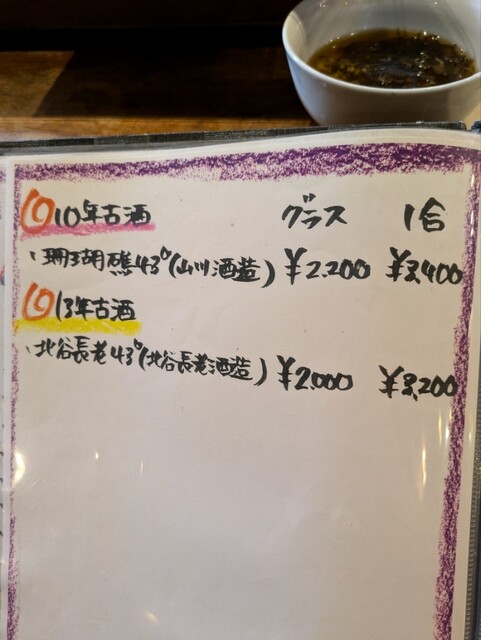 10年古酒 グラス 1合
・珊瑚礁43°(山川酒造) ¥2.200 ¥3,400
13年古酒
・北谷長老43°(北谷長老酒造) ¥2.000 ¥3,200